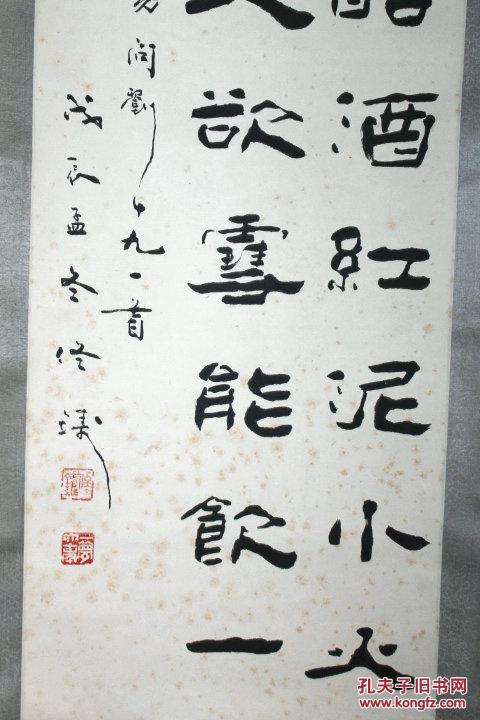 酒紅泥小火
欲雪能飲一
問劉十九一首
戊辰孟冬
孔夫子旧书网
www.kongfz.com